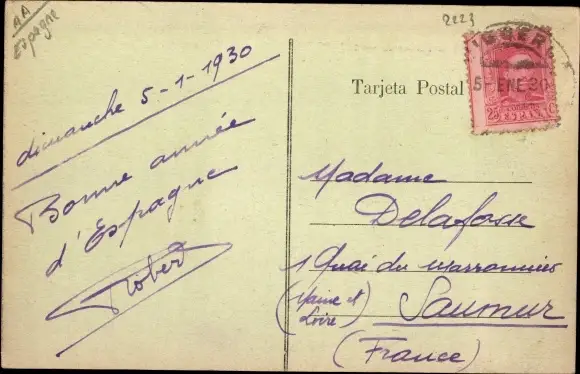 AA
Espagne
dimanche 5-1-1930
Bonne année
d'Espagne
Robert
2223
Tarjeta Postal
5 ENE 30
25 25
Madame
Delafosse
1 Quai du marronnier
(Maine et
Loire)
Saumur
(France)